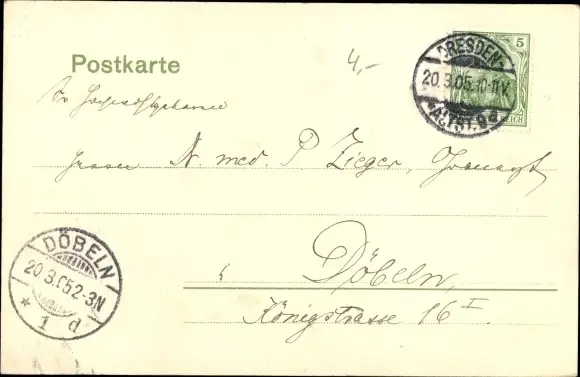 4,-
Postkarte
5
REICH
DRESDEN-
20.3.05.10-11V.
*ALTST. 9 d
Herrn
N. med. P Zieger,
DÖBELN
20 3.05.2-3N
* 1 d
Döbeln,
Königstrasse 16 I